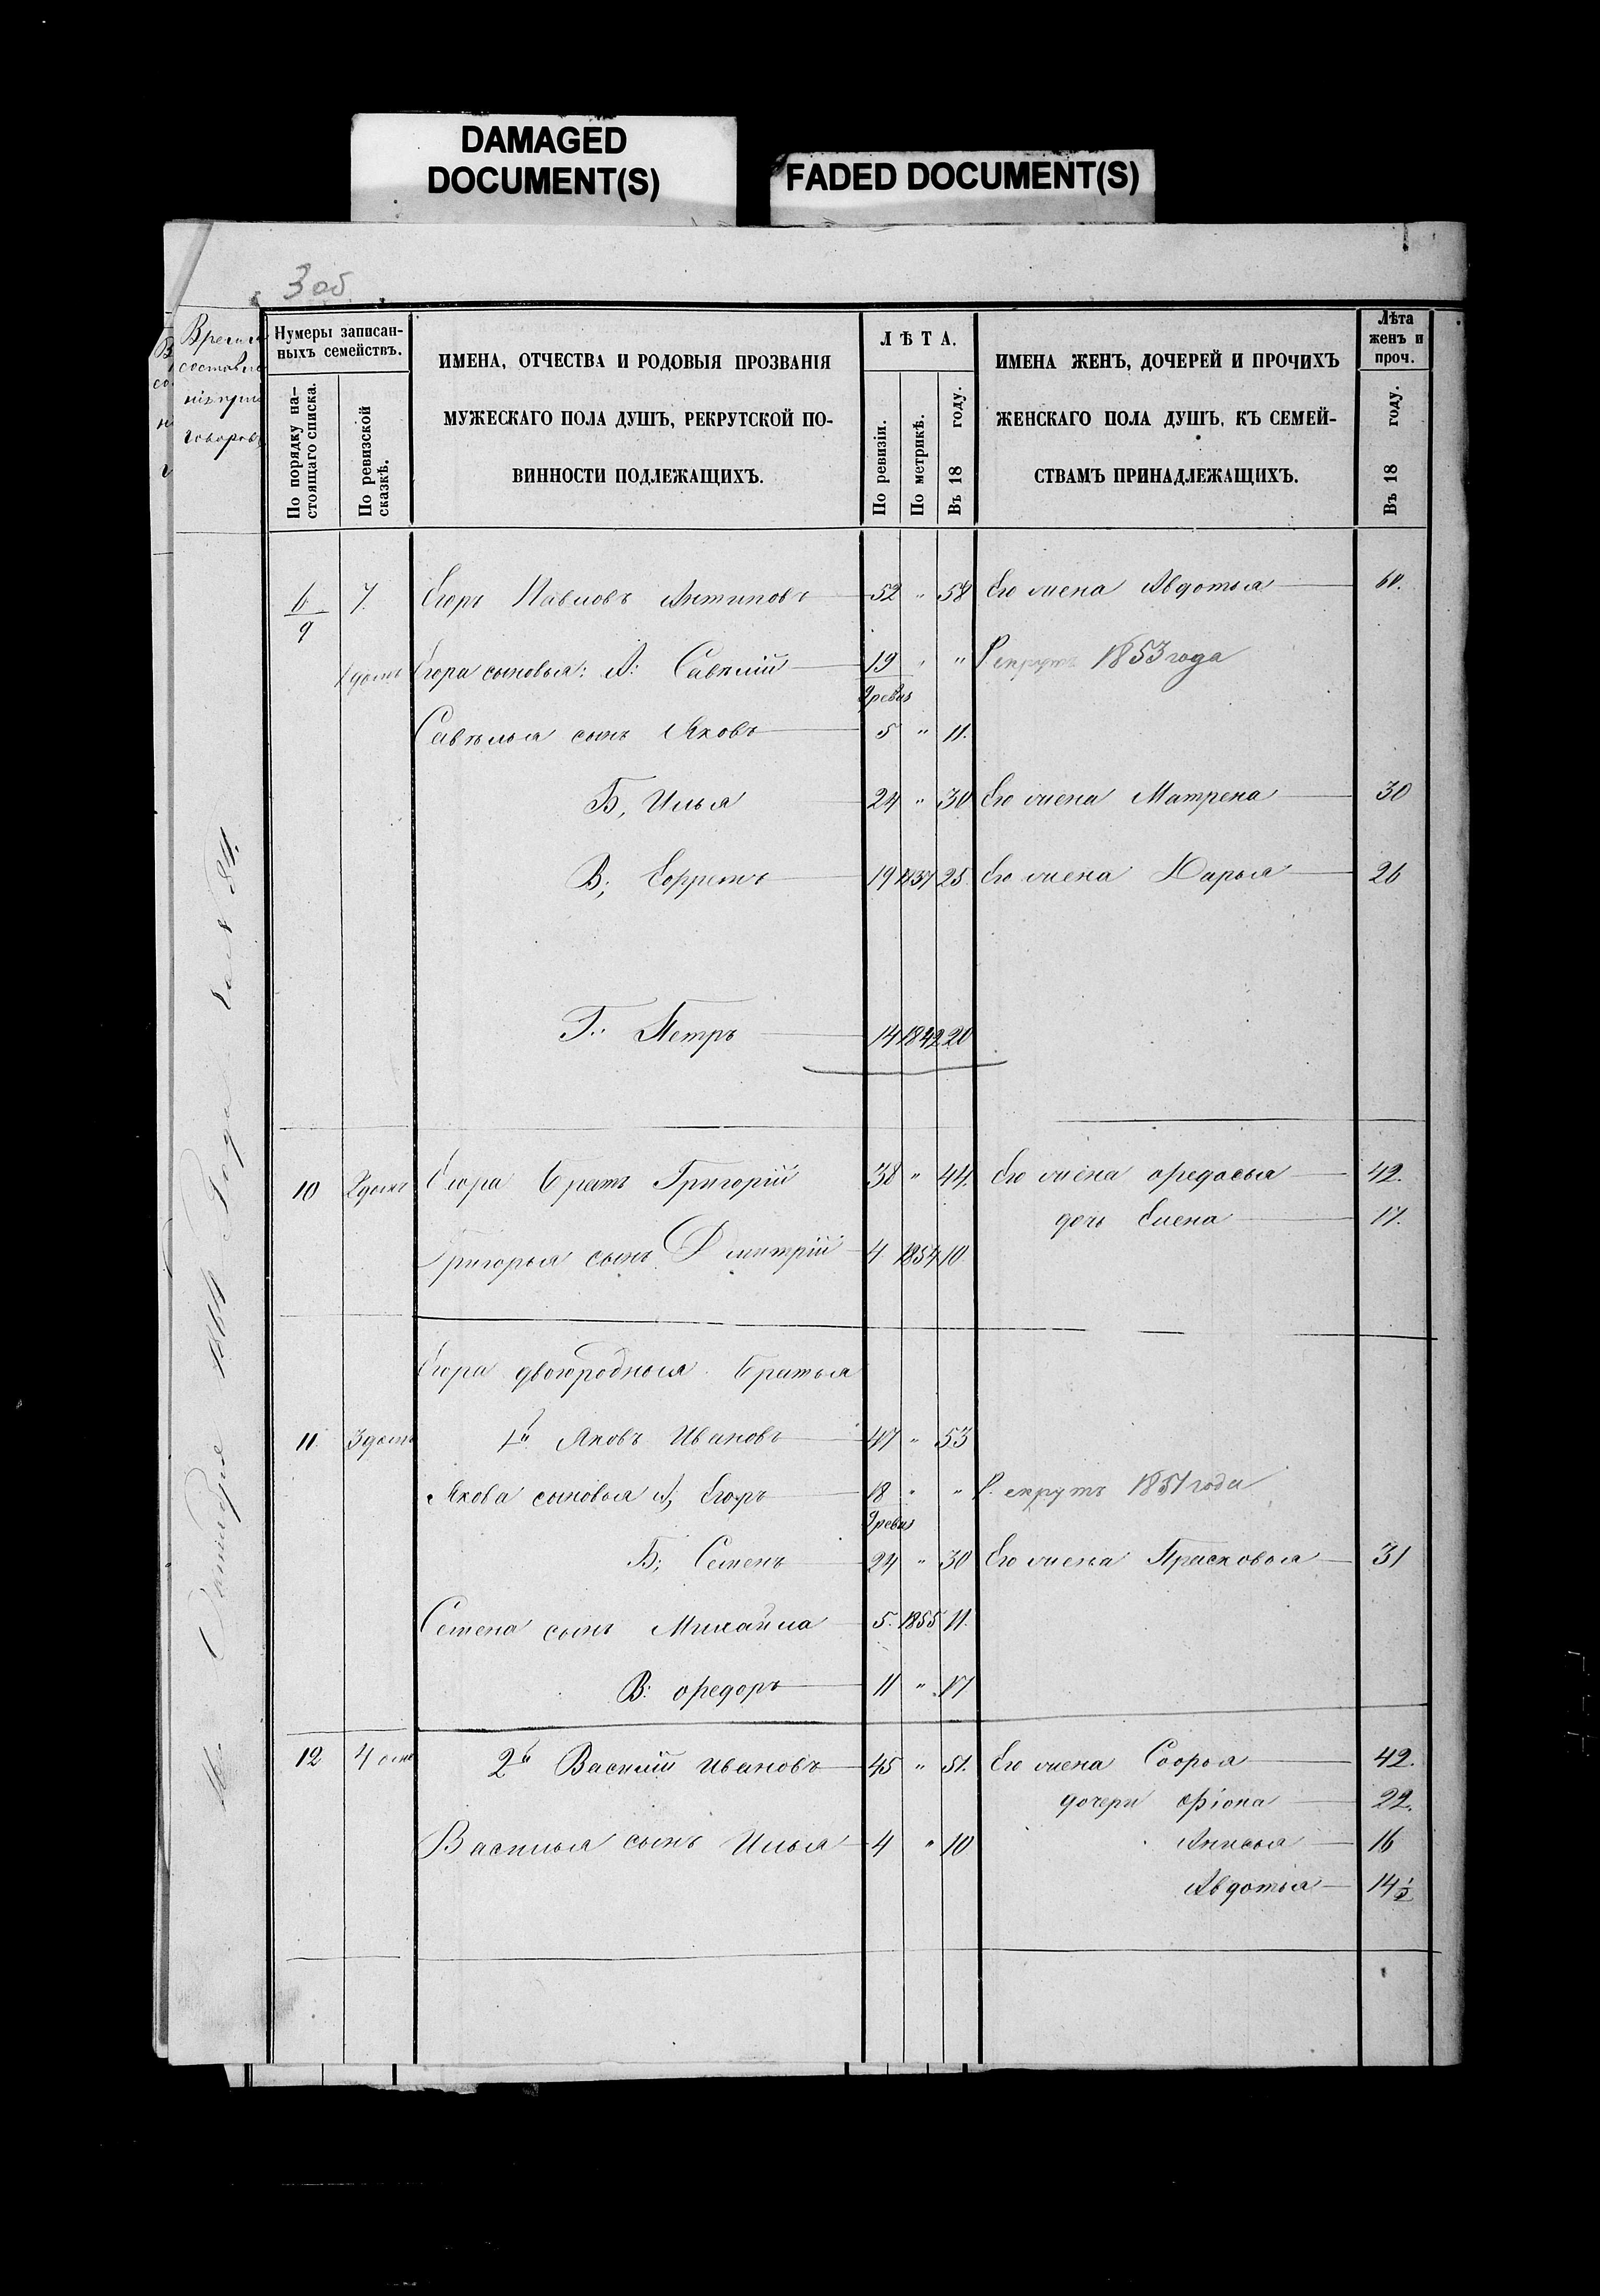 DAMAGED
DOCUMENT(S)
FADED DOCUMENT(S)
3 об
Нумеры записан-
ныхъ семействъ.
По порядку на-
стоящаго списка.
По ревизской
сказкѣ.
ИМЕНА, ОТЧЕСТВА И РОДОВЫЯ ПРОЗВАНІЯ
МУЖЕСКАГО ПОЛА ДУШЪ, РЕКРУТСКОЙ ПО-
ВИННОСТИ ПОДЛЕЖАЩИХЪ.
ЛѢТА.
По ревизіи.
По метрикѣ.
Въ 18 году.
ИМЕНА ЖЕНЪ, ДОЧЕРЕЙ И ПРОЧИХЪ
ЖЕНСКАГО ПОЛА ДУШЪ, КЪ СЕМЕЙ-
СТВАМЪ ПРИНАДЛЕЖАЩИХЪ.
Лѣта
женъ и
проч.
Въ 18 году.
6/9 7. Егоръ Павловъ Антиповъ 52 " 58 Его жена Авдотья 60.
Егора сыновья: А: Савелій 19 " " Рекрутъ 1853 года
9 ревиз
Савелья сынъ Яковъ 5 " 11.
Б, Илья 24 " 30 Его жена Матрена 30
В; Ефремъ 19 1837 25 Его жена Дарья 26
Г: Петръ 14 1842 20
10 Егора братъ Григорій 38 " 44. Его жена Федосья 42.
дочь Елена 17.
Григорья сынъ Дмитрій 4 1854 10
Егора двоюродныя братья
11 1й Яковъ Ивановъ 47 " 53
Якова сыновья А, Егоръ 18 " " Рекрутъ 1851 года
9 ревиз
Б; Семенъ 24 " 30 Его жена Прасковья 31
Семена сынъ Михайла 5. 1855 11.
В: Федоръ 11 " 17
12 2й Василій Ивановъ 45 " 51. Его жена Софья 42.
дочери Фіона 22.
Василья сынъ Илья 4 " 10 Анисья 16
Авдотья 14 1/2